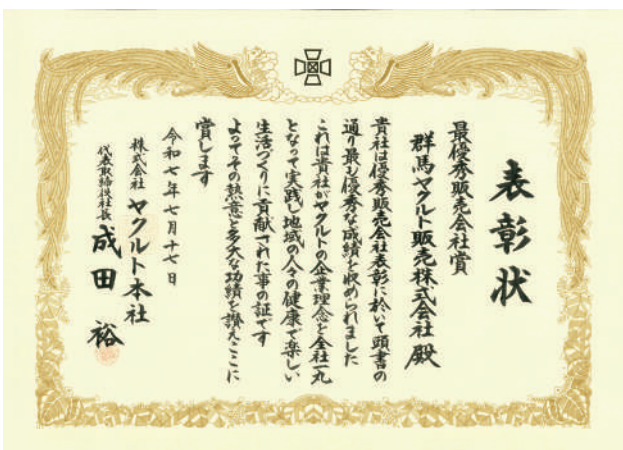 表彰状
最優秀販売会社賞
群馬ヤクルト販売株式会社 殿
貴社は優秀販売会社表彰に於いて頭書の
通り最も優秀な成績を収められました
これは貴社がヤクルトの企業理念を全社一丸
となって実践し地域の人々の健康で楽しい
生活づくりに貢献された事の証です
よってその熱意と多大な功績を讃えここに
賞します
令和七年七月十七日
株式会社 ヤクルト本社
代表取締役社長 成田 裕